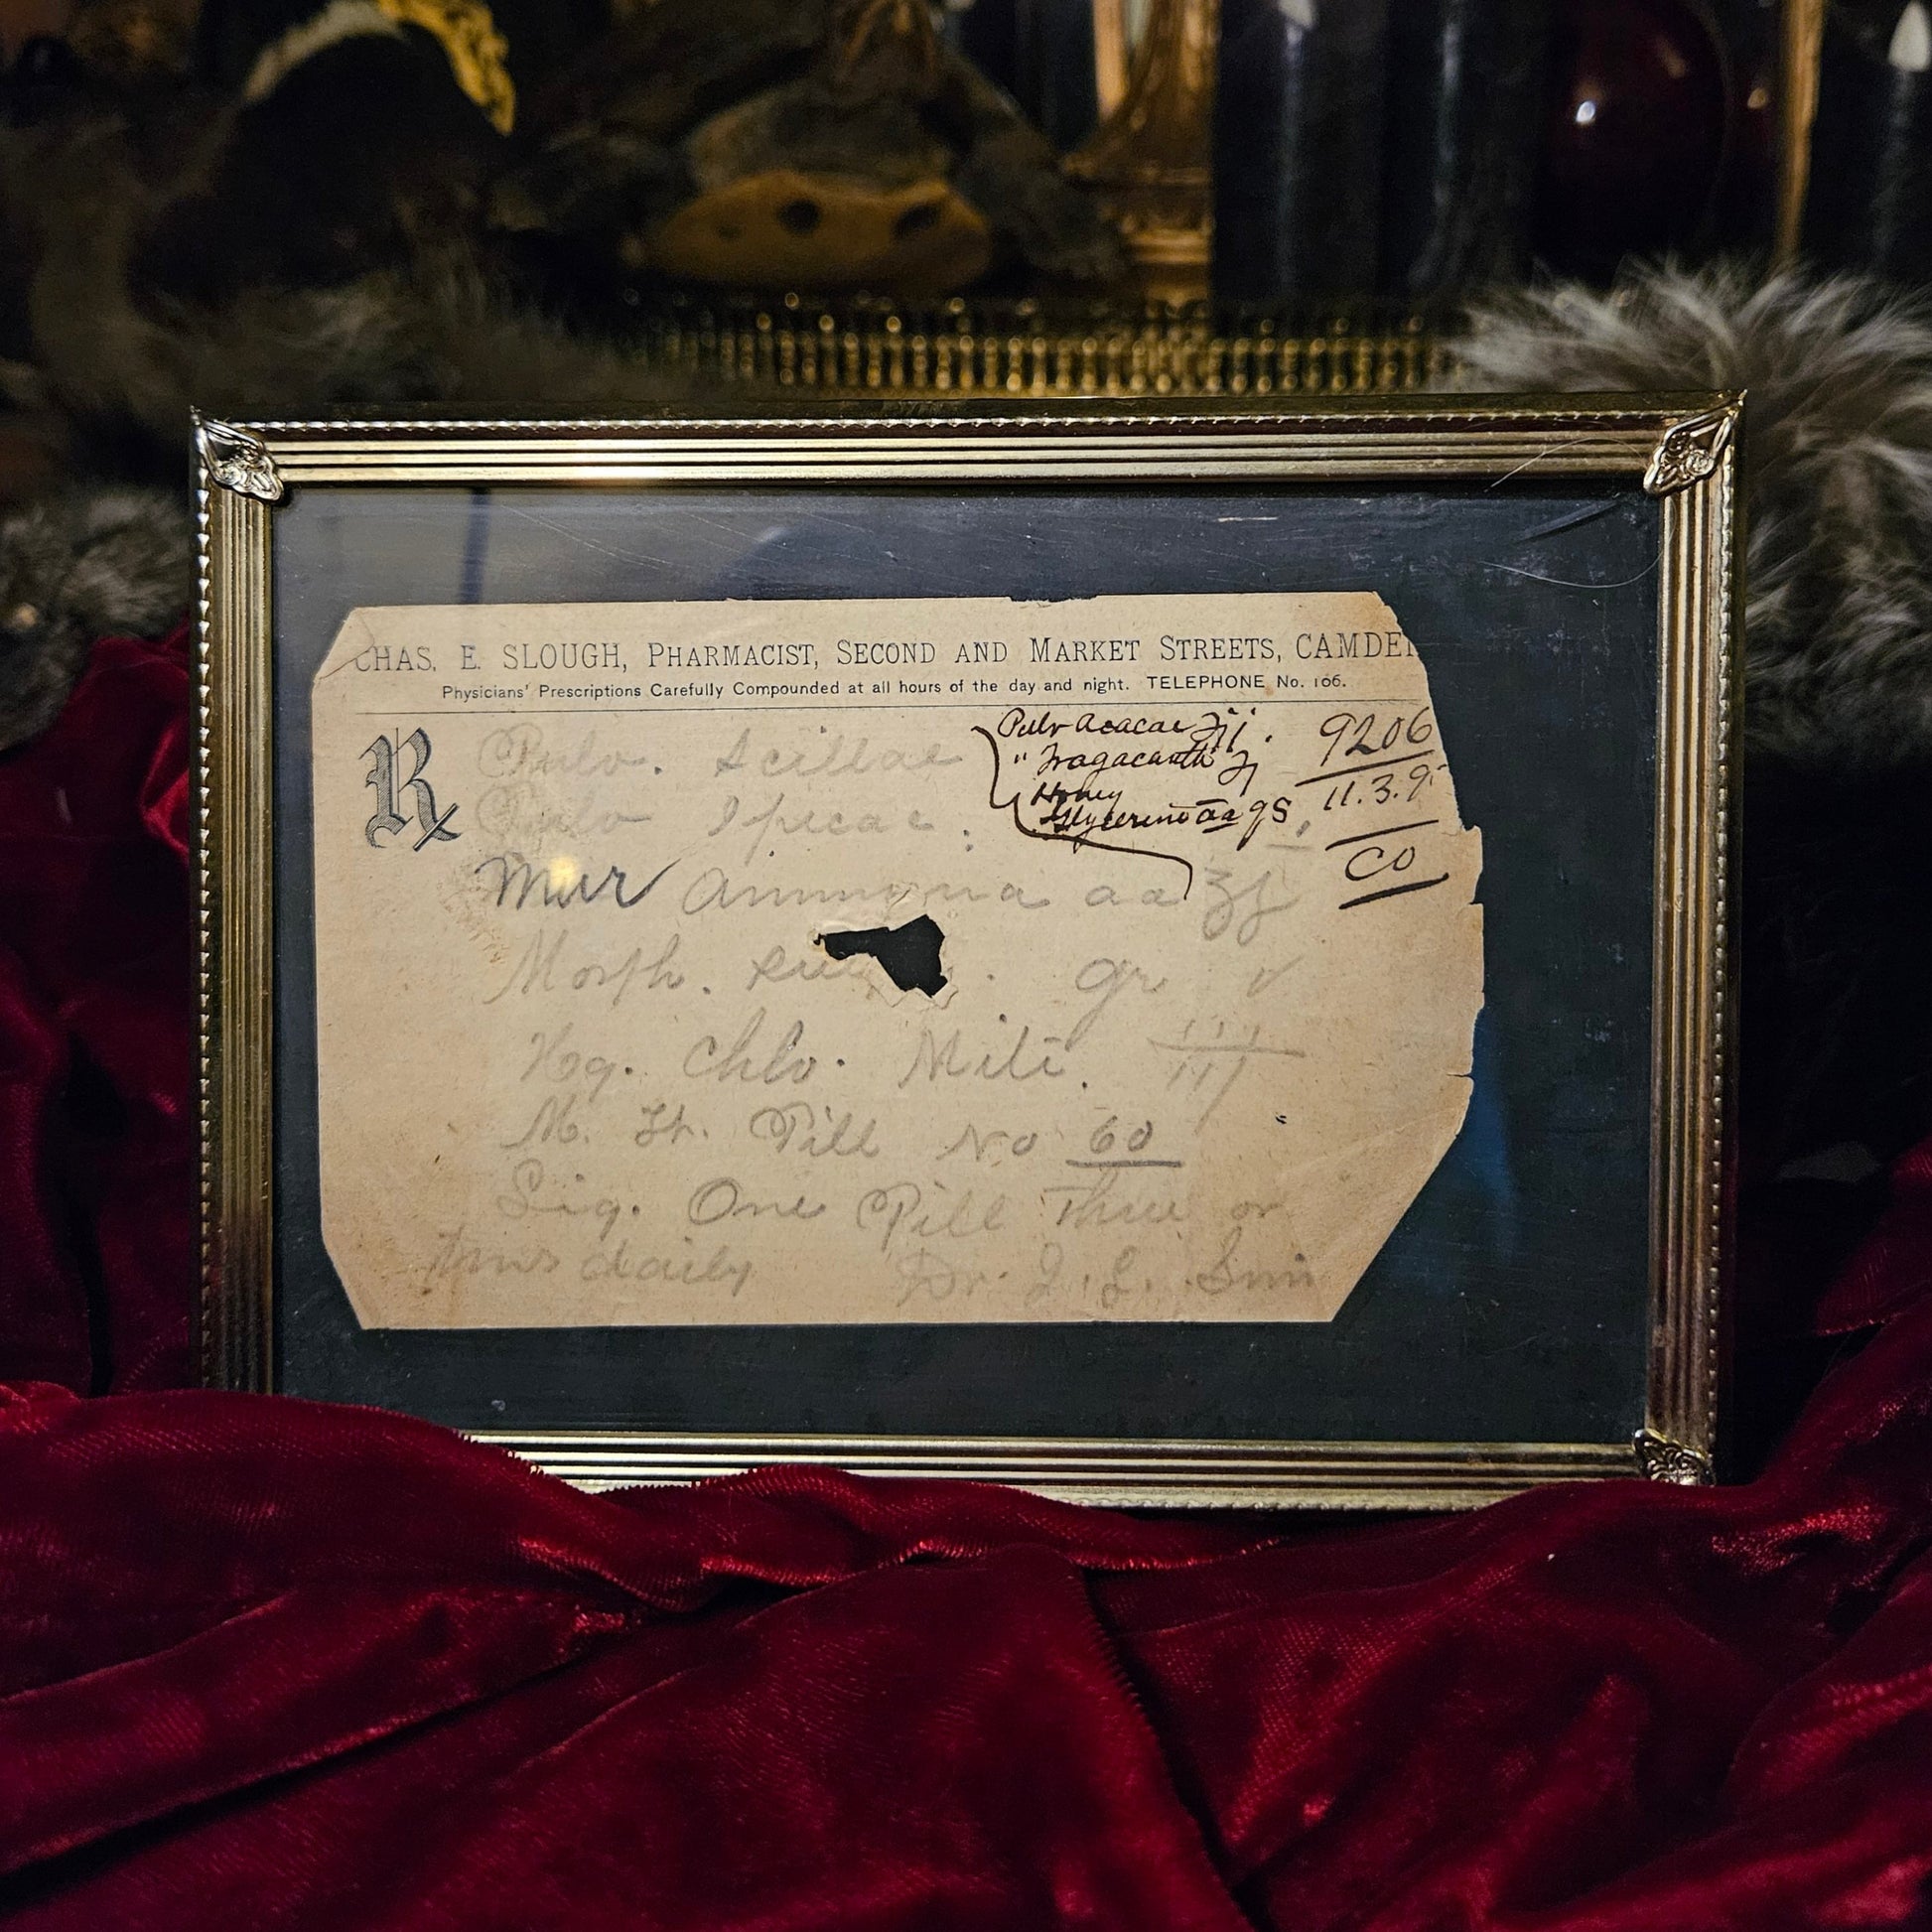 CHAS. E. SLOUGH, PHARMACIST, SECOND AND MARKET STREETS, CAMDE
Physicians' Prescriptions Carefully Compounded at all hours of the day and night. TELEPHONE No. 106.
Rx
Pulv. Scillae
Pulv Ipecac.
Mur Ammonia aa ʒj
Morph. gr v
Hg. Chlo. Miti.
M. Ft. Pill No 60
Sig. One Pill Three or
times daily Dr. J. L.
Pulv Acacae ʒij.
" Tragacanth ʒj
Honey
Glycerine aa qs.
9206
11.3.9
CO